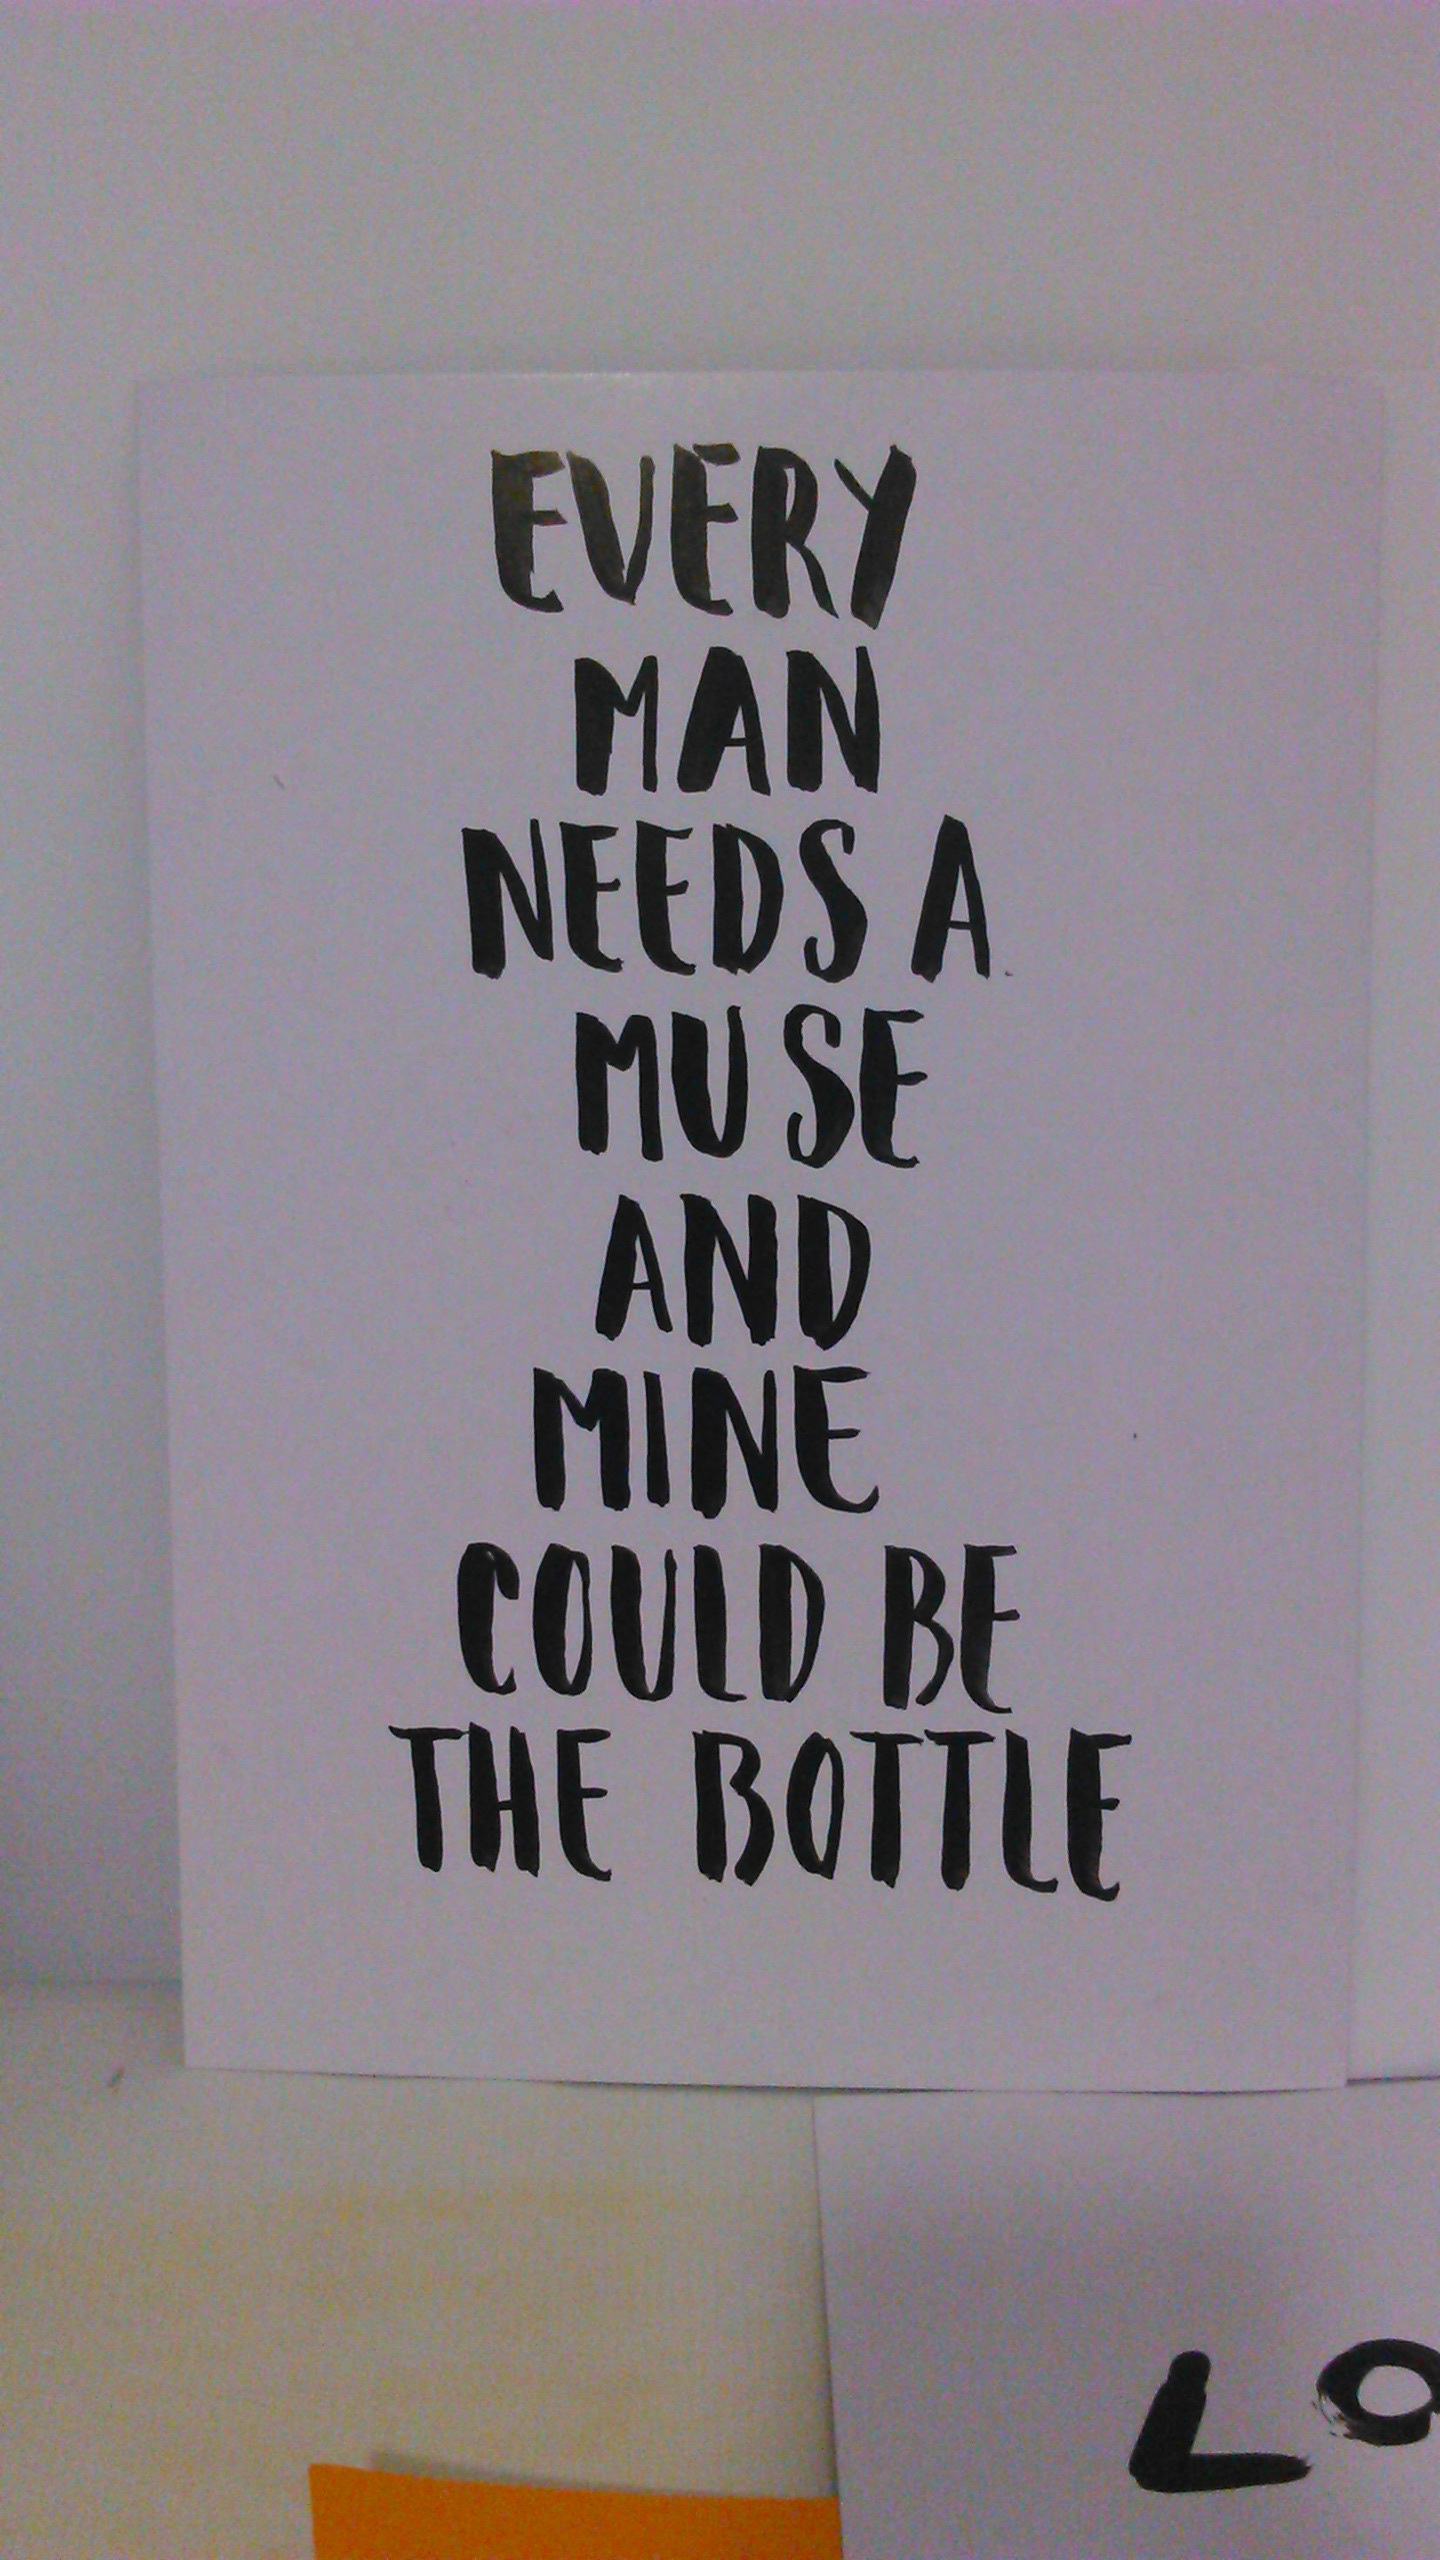 EVERY
MAN
NEEDS A
MUSE
AND
MINE
COULD BE
THE BOTTLE